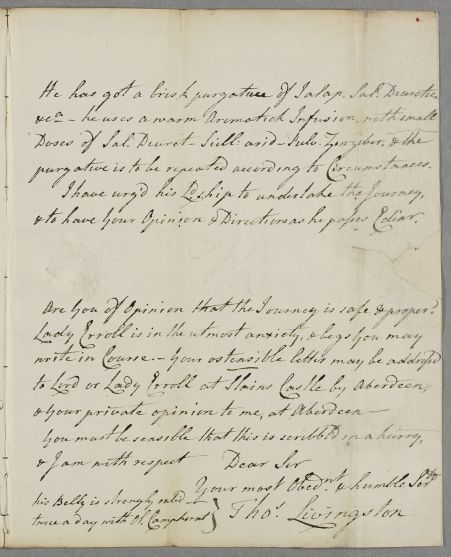 He has got a brisk purgative of Jalap. Sal. Diuretic.
&ca - he uses a warm Aromatick Infusion, with small
Doses of Sal. Diuret - Scill: arid - Pulv. Zinziber, & the
purgative is to be repeated according to Circumstances.
I have urg'd his Ldship to undertake the Journey,
& to have Your Opinion & Directions as he passes Ediar.
Are You of Opinion that the Journey is safe & proper?
Lady Erroll is in the utmost anxiety, & begs You may
write in Course - Your ostensible letter may be addressed
to Lord or Lady Erroll at Slains Castle by Aberdeen,
& Your private opinion to me, at Aberdeen -
You must be sensible that this is scribbl'd in a hurry,
& I am with respect Dear Sir
Your most Obednt & humble Sert
his Belly is strongly rubd
twice a day with Ol. Camphorat
Thos. Livingston